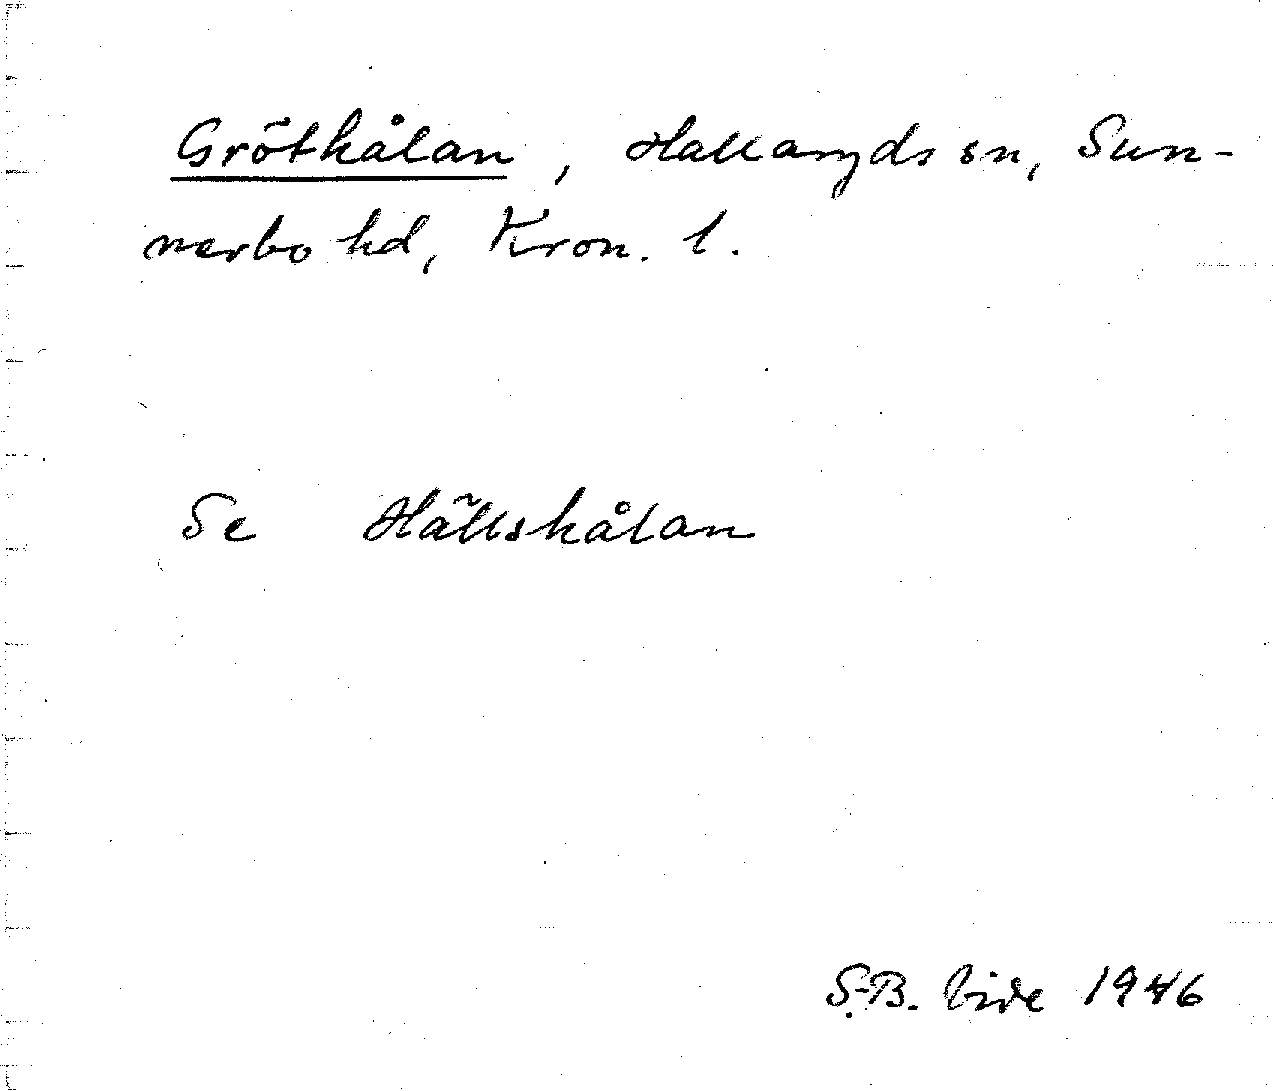 Gröthålan, Hallaryds sn, Sun-
nerbo hd, Kron. l.
Se Hällshålan
S-B. Vide 1946